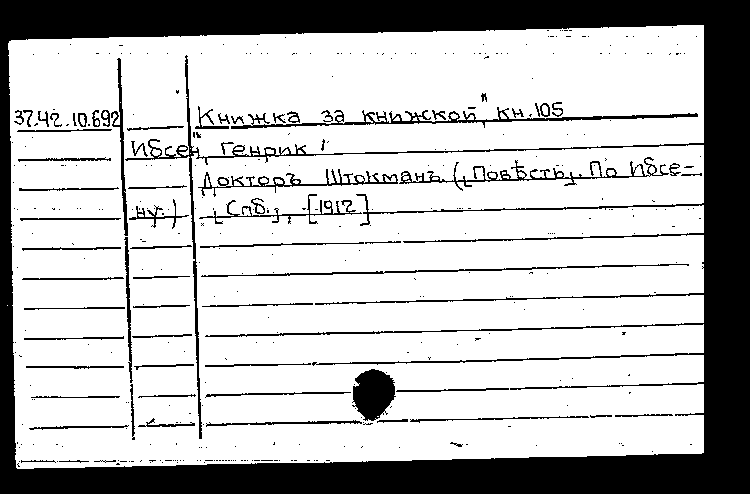 37.42.10.692 Книжка за книжкой", кн.105
Ибсен, Генрик
Докторъ Штокманъ. (Повѣсть. По Ибсе-
ну.) Спб., [1912]